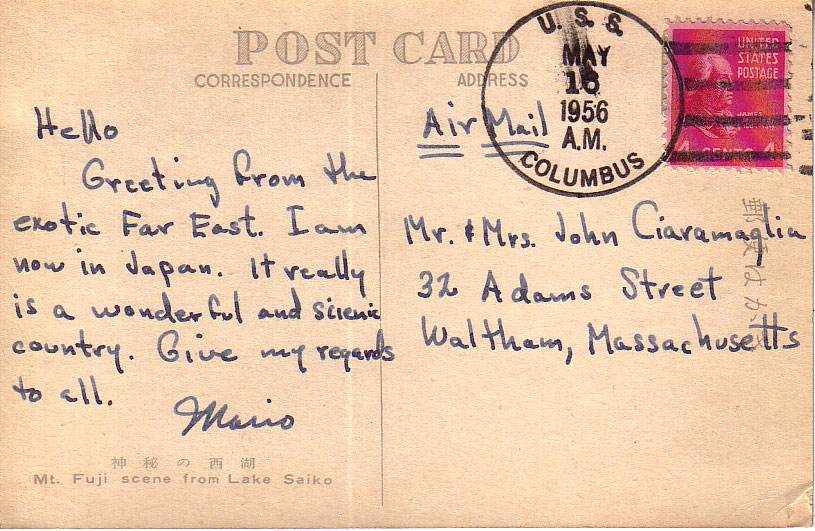 POST CARD
CORRESPONDENCE
ADDRESS
U. S. S.
MAY
1956
A.M.
COLUMBUS
UNITED
STATES
POSTAGE
4 CENTS 4
Hello
Greeting from the
exotic Far East. I am
now in Japan. It really
is a wonderful and scienic
country. Give my regards
to all.
Mario
Air Mail
Mr. & Mrs. John Ciaramaglia
32 Adams Street
Waltham, Massachusetts
郵便はがき
神秘の西湖
Mt. Fuji scene from Lake Saiko